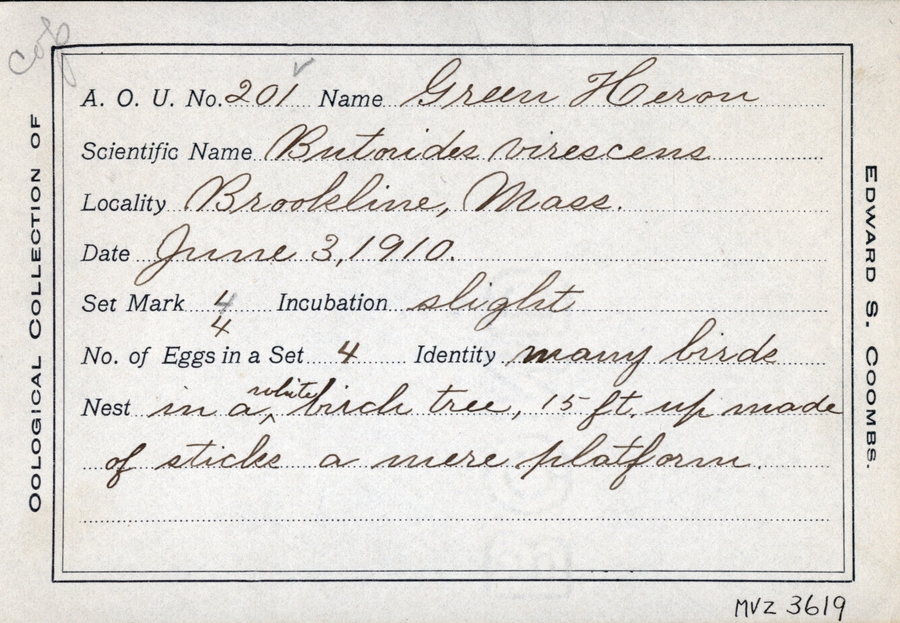 OOLOGICAL COLLECTION OF
A. O. U. No. 201 Name Green Heron
Scientific Name Butorides virescens
Locality Brookline, Mass.
Date June 3, 1910.
Set Mark 4 Incubation slight
4
No. of Eggs in a Set 4 Identity many birds
Nest in a ^white birch tree, 15 ft. up made
of sticks a mere platform.
EDWARD S. COOMBS.
MVZ 3619